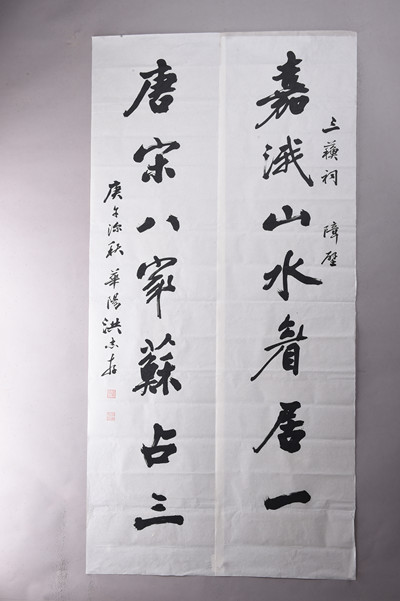 三蘇祠 障壁
嘉浅山水眉居一
唐宋八家蘇占三
庚午深秋華陽洪志存